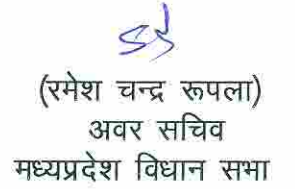 (रमेश चन्द्र रूपला)
अवर सचिव
मध्यप्रदेश विधान सभा